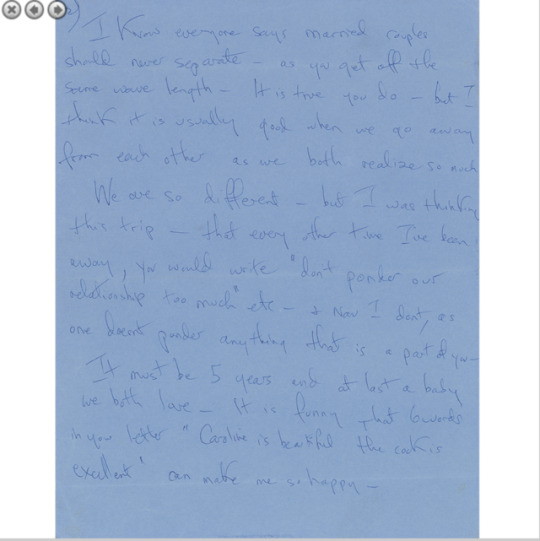 2)
I Know everyone says married couples
should never separate – as you get off the
same wave length – It is true you do – but I
think it is usually good when we go away
from each other as we both realize so much
We are so different – but I was thinking
this trip – that every other time I've been
away, you would write "don't ponder our
relationship too much" etc – & Now I don't, as
one doesn't ponder anything that is a part of you –
It must be 5 years and at last a baby
we both love – It is funny that 6 words
in your letter "Caroline is beautiful the cook is
excellent" can make me so happy –